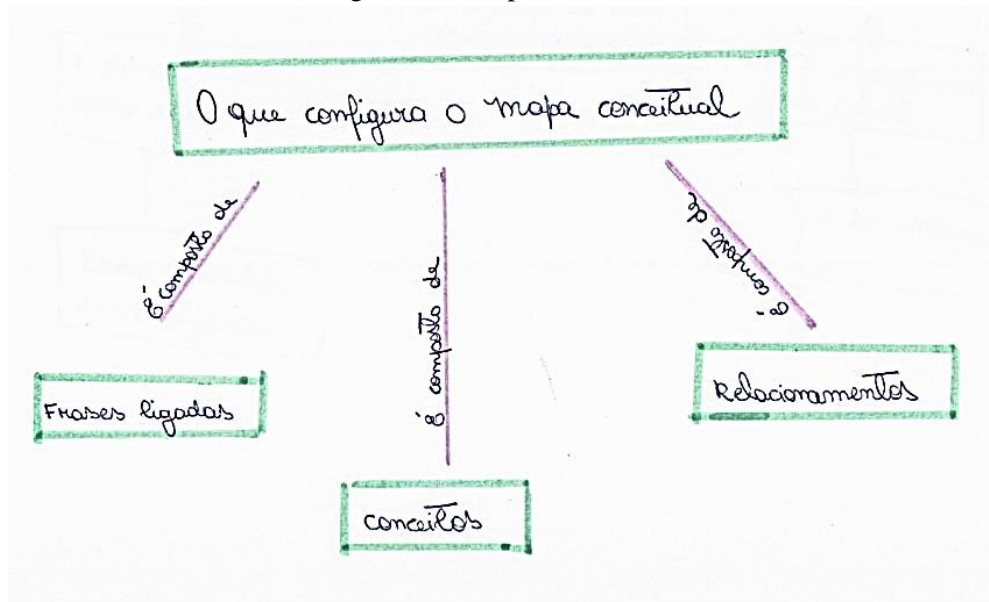 O que configura o mapa conceitual
É composto de
É composto de
É composto de
Frases ligadas
Relacionamentos
conceitos